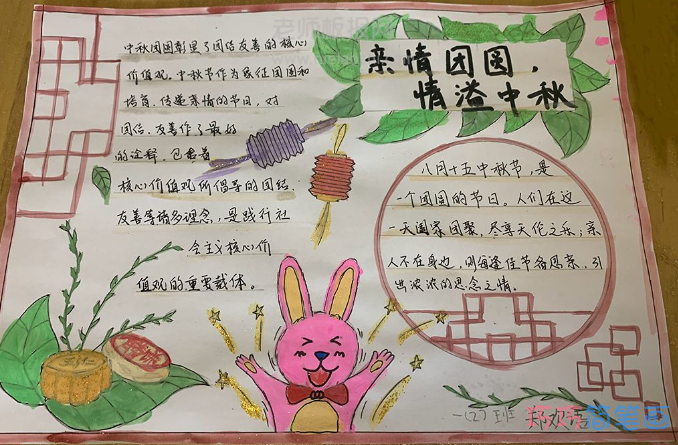 亲情团圆，
情溢中秋
中秋团圆彰显了团结友善的核心
价值观，中秋节作为象征团圆和
培育、传递亲情的节日，对
团结、友善作了最好
的诠释，包含着
核心价值观所倡导的团结
友善等诸多理念，是践行社
会主义核心价
值观的重要载体。
八月十五中秋节，是
一个团圆的节日。人们在这
一天阖家团聚，尽享天伦之乐；亲
人不在身边，则每逢佳节倍思亲，引
出浓浓的思念之情。
一(2)班
简笔画